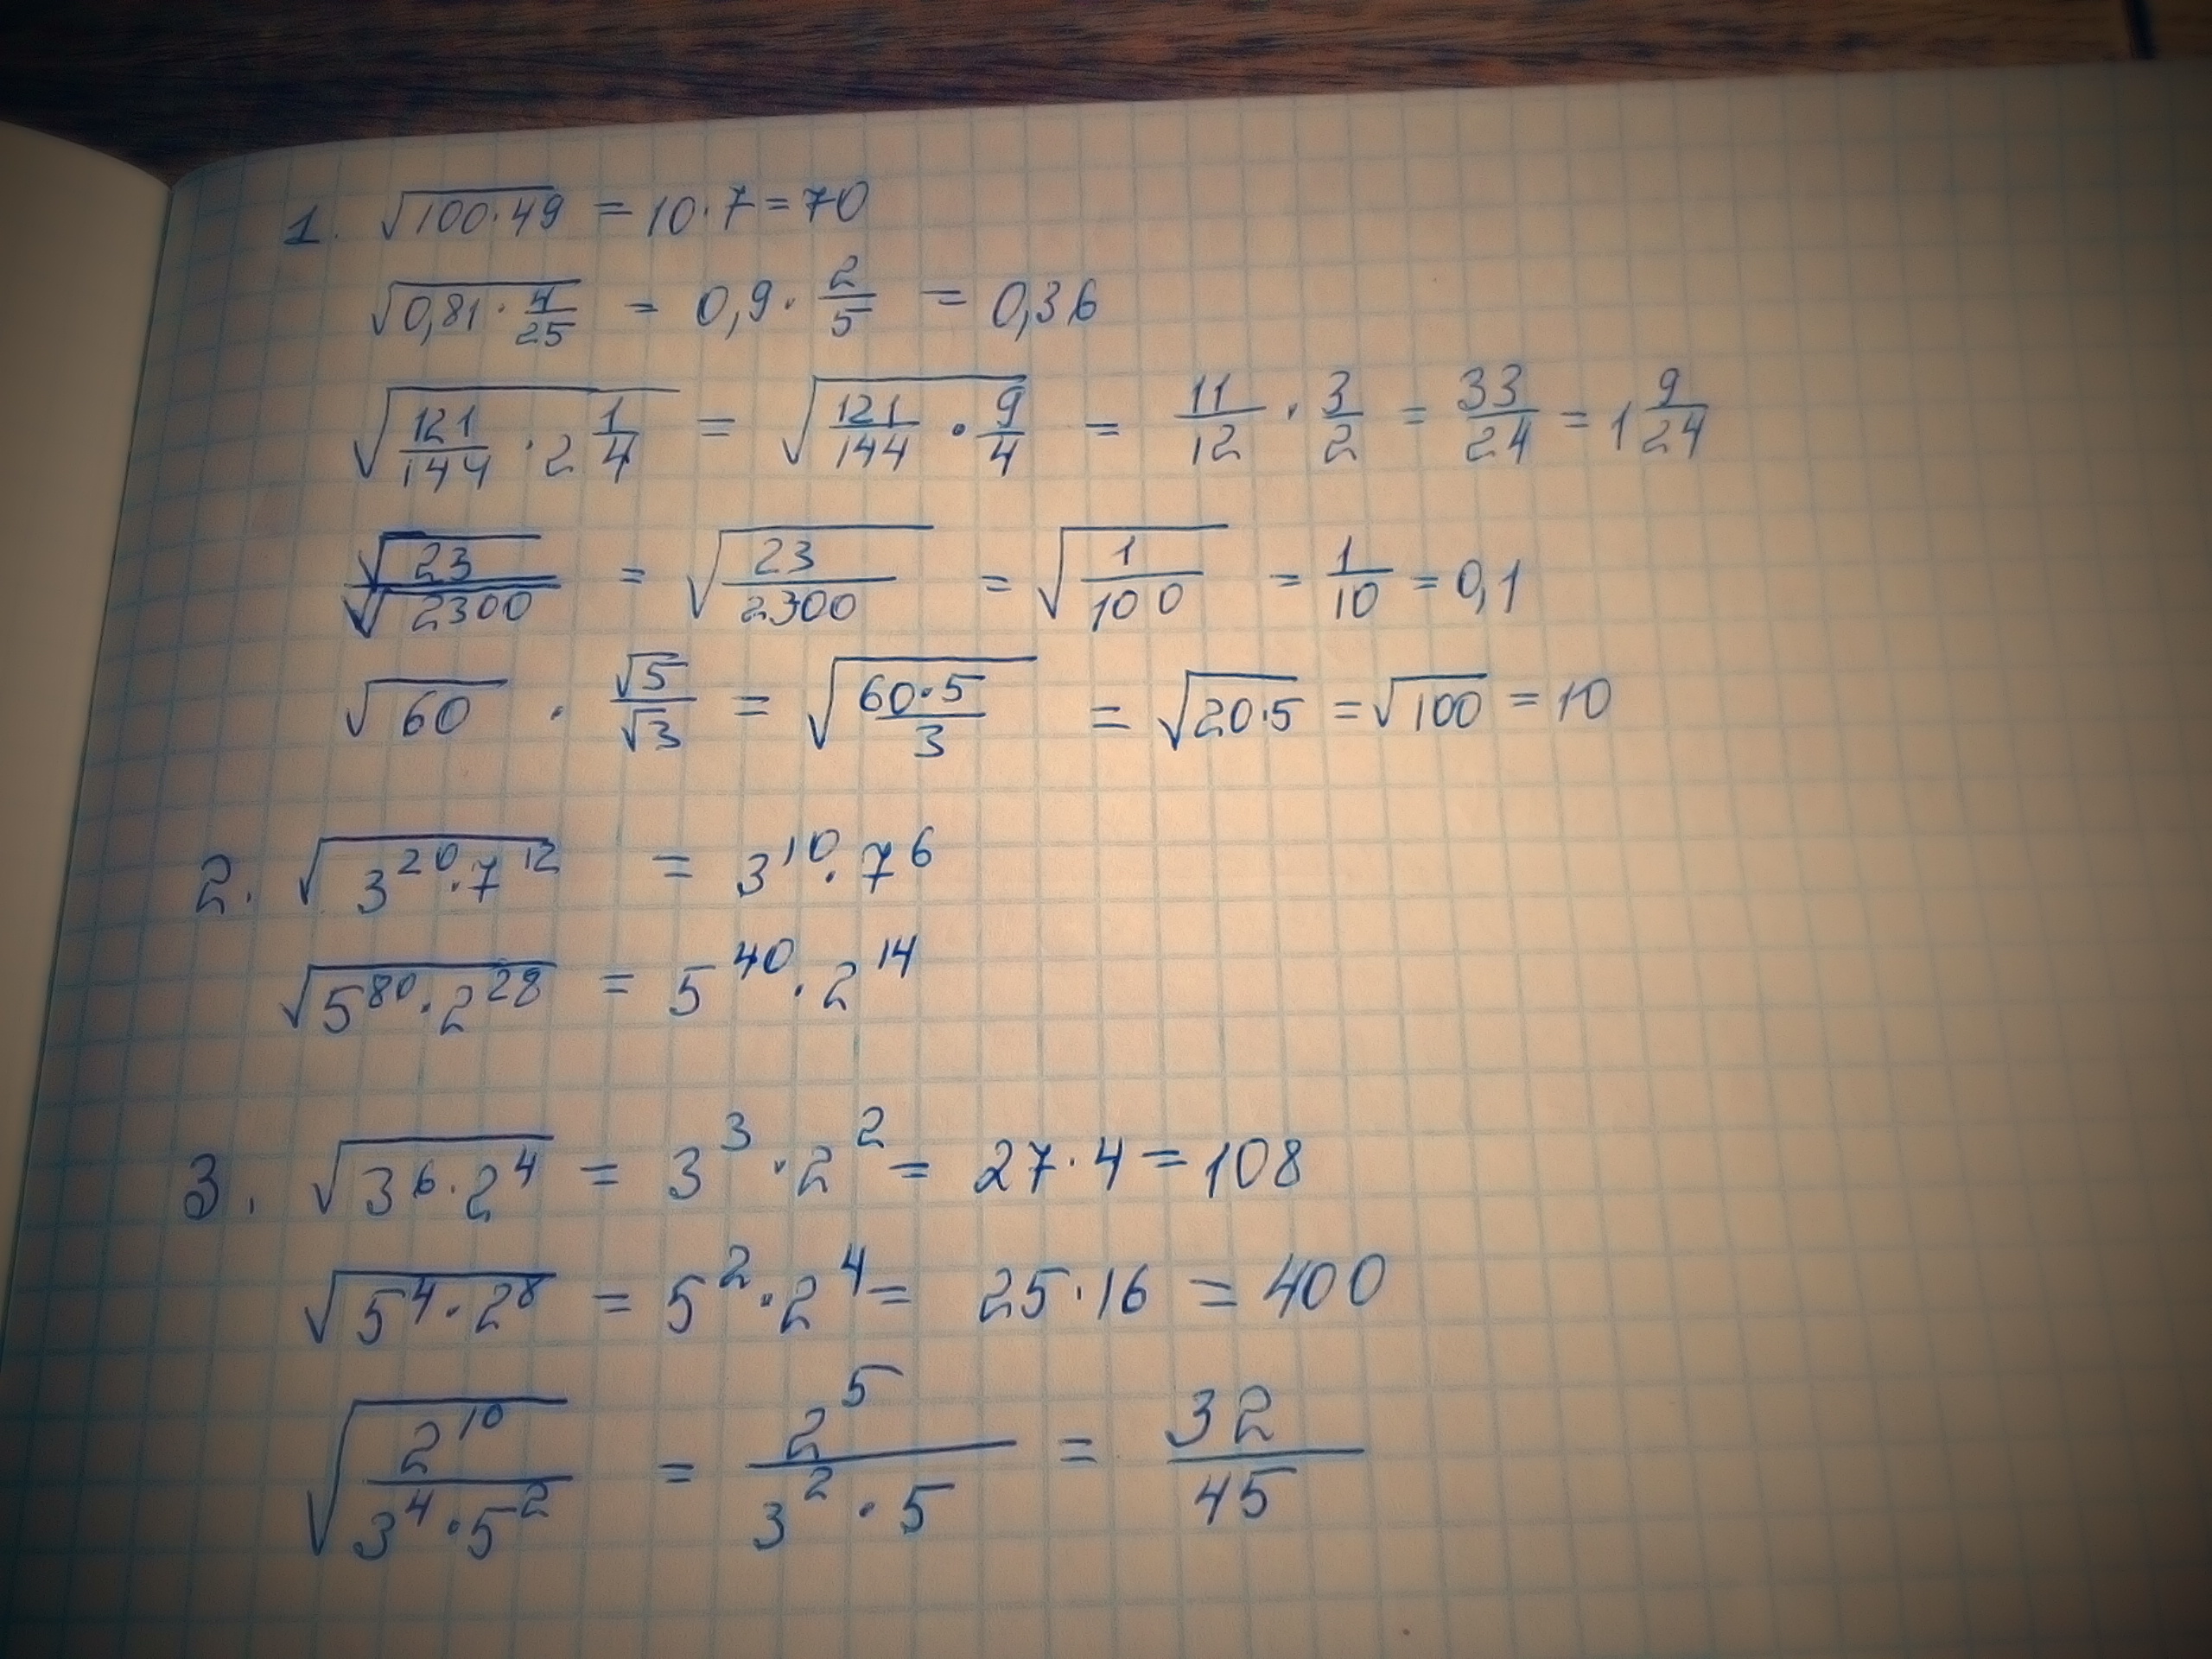 1. √(100·49) = 10·7 = 70
√(0,81 · 4/25) = 0,9 · 2/5 = 0,36
√(121/144 · 2 1/4) = √(121/144 · 9/4) = 11/12 · 3/2 = 33/24 = 1 9/24
√23/√2300 = √(23/2300) = √(1/100) = 1/10 = 0,1
√60 · √5/√3 = √(60·5/3) = √(20·5) = √100 = 10
2. √(3²⁰·7¹²) = 3¹⁰·7⁶
√(5⁸⁰·2²⁸) = 5⁴⁰·2¹⁴
3. √(3⁶·2⁴) = 3³·2² = 27·4 = 108
√(5⁴·2⁸) = 5²·2⁴ = 25·16 = 400
√(2¹⁰/(3⁴·5²)) = 2⁵/(3²·5) = 32/45